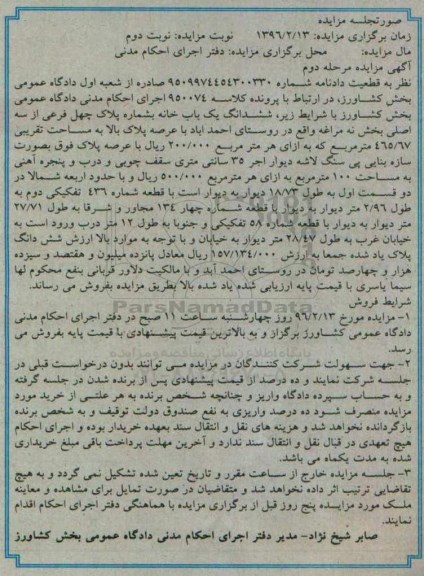 صورتجلسه مزایده
زمان برگزاری مزایده: ۱۳۹۶/۲/۱۳ نوبت مزایده: نوبت دوم
مال مزایده: محل برگزاری مزایده: دفتر اجرای احکام مدنی
آگهی مزایده مرحله دوم
نظر به قطعیت دادنامه شماره ۹۵۰۹۹۷۴۴۵۴۳۰۰۳۳۰ صادره از شعبه اول دادگاه عمومی
بخش کشاورز، در ارتباط با پرونده کلاسه ۹۵۰۰۷۴ اجرای احکام مدنی دادگاه عمومی
بخش کشاورز با شرایط زیر، ششدانگ یک باب خانه بشماره پلاک چهل فرعی از سه
اصلی بخش نه مراغه واقع در روستای احمد اباد با عرصه پلاک بالا به مساحت تقریبی
۴۶۵/۶۷ مترمربع که به ازای هر متر مربع ۲۰۰/۰۰۰ ریال با عرصه پلاک فوق بصورت
سازه بنایی پی سنگ لاشه دیوار اجر ۳۵ سانتی متری سقف چوبی و درب و پنجره آهنی
به مساحت ۱۰۰ مترمربع به ازای هر مترمربع ۵۰۰/۰۰۰ ریال و با حدود اربعه شمالا در
دو قسمت اول به طول ۱۸/۷۳ دیوار به دیوار است با قطعه شماره ۴۳۶ تفکیکی دوم به
طول ۲/۹۶ متر دیوار به دیوار با قطعه شماره چهار ۱۳۴ مجاور و شرقا به طول ۲۷/۷۱
متر دیوار به دیوار با قطعه شماره ۵۸ تفکیکی و جنوبا به طول ۱۲ متر درب ورود است به
خیابان غرب به طول ۲۸/۴۷ متر دیوار به خیابان و با توجه به موارد بالا ارزش شش دانگ
پلاک یاد شده جمعا به ارزش ۱۵۷/۱۳۴/۰۰۰ ریال معادل پانزده میلیون و هفتصد و سیزده
هزار و چهارصد تومان در روستای احمد آباد و با مالکیت دلاور قربانی بنفع محکوم لها
سیما یاسری با قیمت پایه ارزیابی شده یاد شده بالا بطریق مزایده بفروش می رساند.
شرایط فروش
۱- مزایده مورخ ۹۶/۲/۱۳ روز چهارشنبه ساعت ۱۱ صبح در دفتر اجرای احکام مدنی
دادگاه عمومی کشاورز برگزار و به بالاترین قیمت پیشنهادی با قیمت پایه بفروش می
رسد.
۲- جهت سهولت شرکت کنندگان در مزایده می توانند بدون درخواست قبلی در
جلسه شرکت نمایند و ده درصد از قیمت پیشنهادی پس از برنده شدن در جلسه گرفته
و به حساب سپرده دادگاه واریز و چنانچه شخص برنده به هر علتی از خرید مورد
مزایده منصرف شود ده درصد واریزی به نفع صندوق دولت توقیف و به شخص برنده
بازگردانده نخواهد شد و هزینه های نقل و انتقال سند بعهده خریدار بوده و اجرای احکام
هیچ تعهدی در قبال نقل و انتقال سند ندارد و آخرین مهلت پرداخت باقی مبلغ خریداری
شده به مدت یکماه می باشد.
۳- جلسه مزایده خارج از ساعت مقرر و تاریخ تعین شده تشکیل نمی گردد و به هیچ
تقاضایی ترتیب اثر داده نخواهد شد و متقاضیان در صورت تمایل برای مشاهده و معاینه
ملک مورد مزایده پنج روز قبل از برگزاری مزایده با هماهنگی دفتر اجرای احکام اقدام
نمایند.
صابر شیخ نژاد- مدیر دفتر اجرای احکام مدنی دادگاه عمومی بخش کشاورز
ParsNamadData
پایگاه اطلاع رسانی مناقصه و مزایده